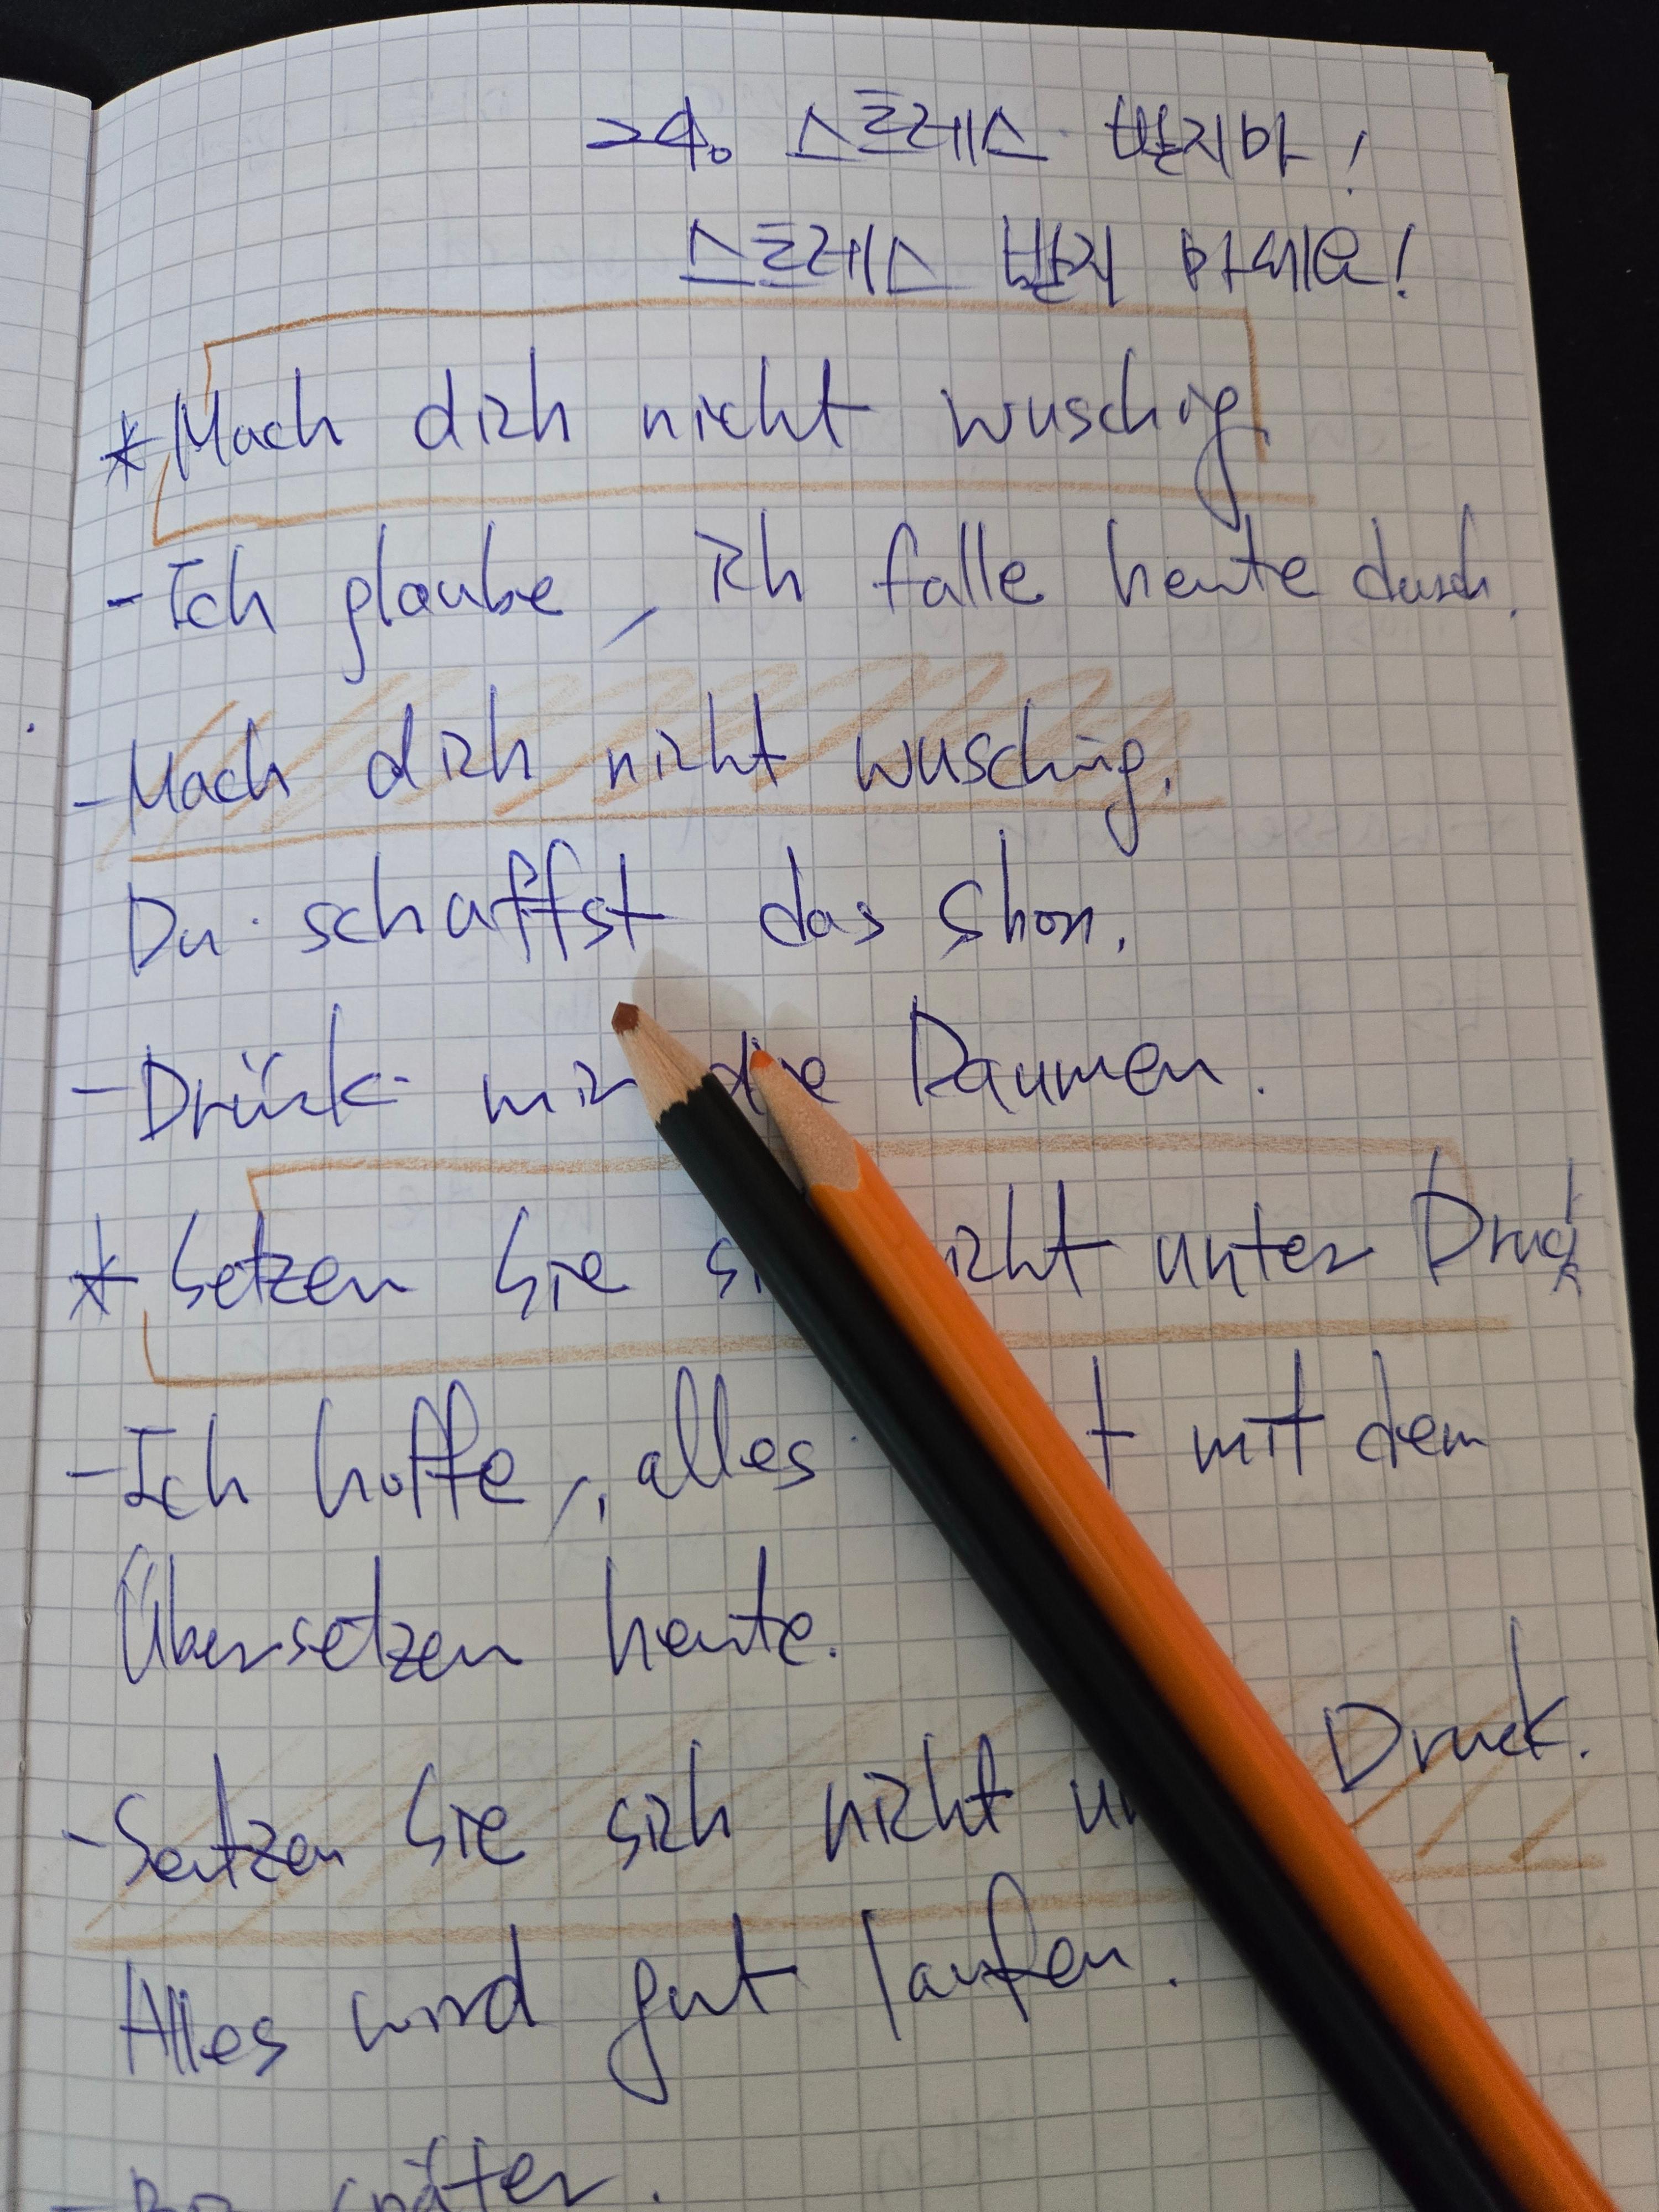 24. 스트레스 받지마!
스트레스 받지 마세요!
* Mach dich nicht wuschig
- Ich glaube, ich falle heute durch.
- Mach dich nicht wuschig.
Du schaffst das shon.
- Drück mir die Daumen.
* Setzen Sie nicht unter Druck
- Ich hoffe, alles mit dem
Übersetzen heute.
- Setzen Sie sich nicht Druck.
Alles wird gut laufen.
- Bis später.